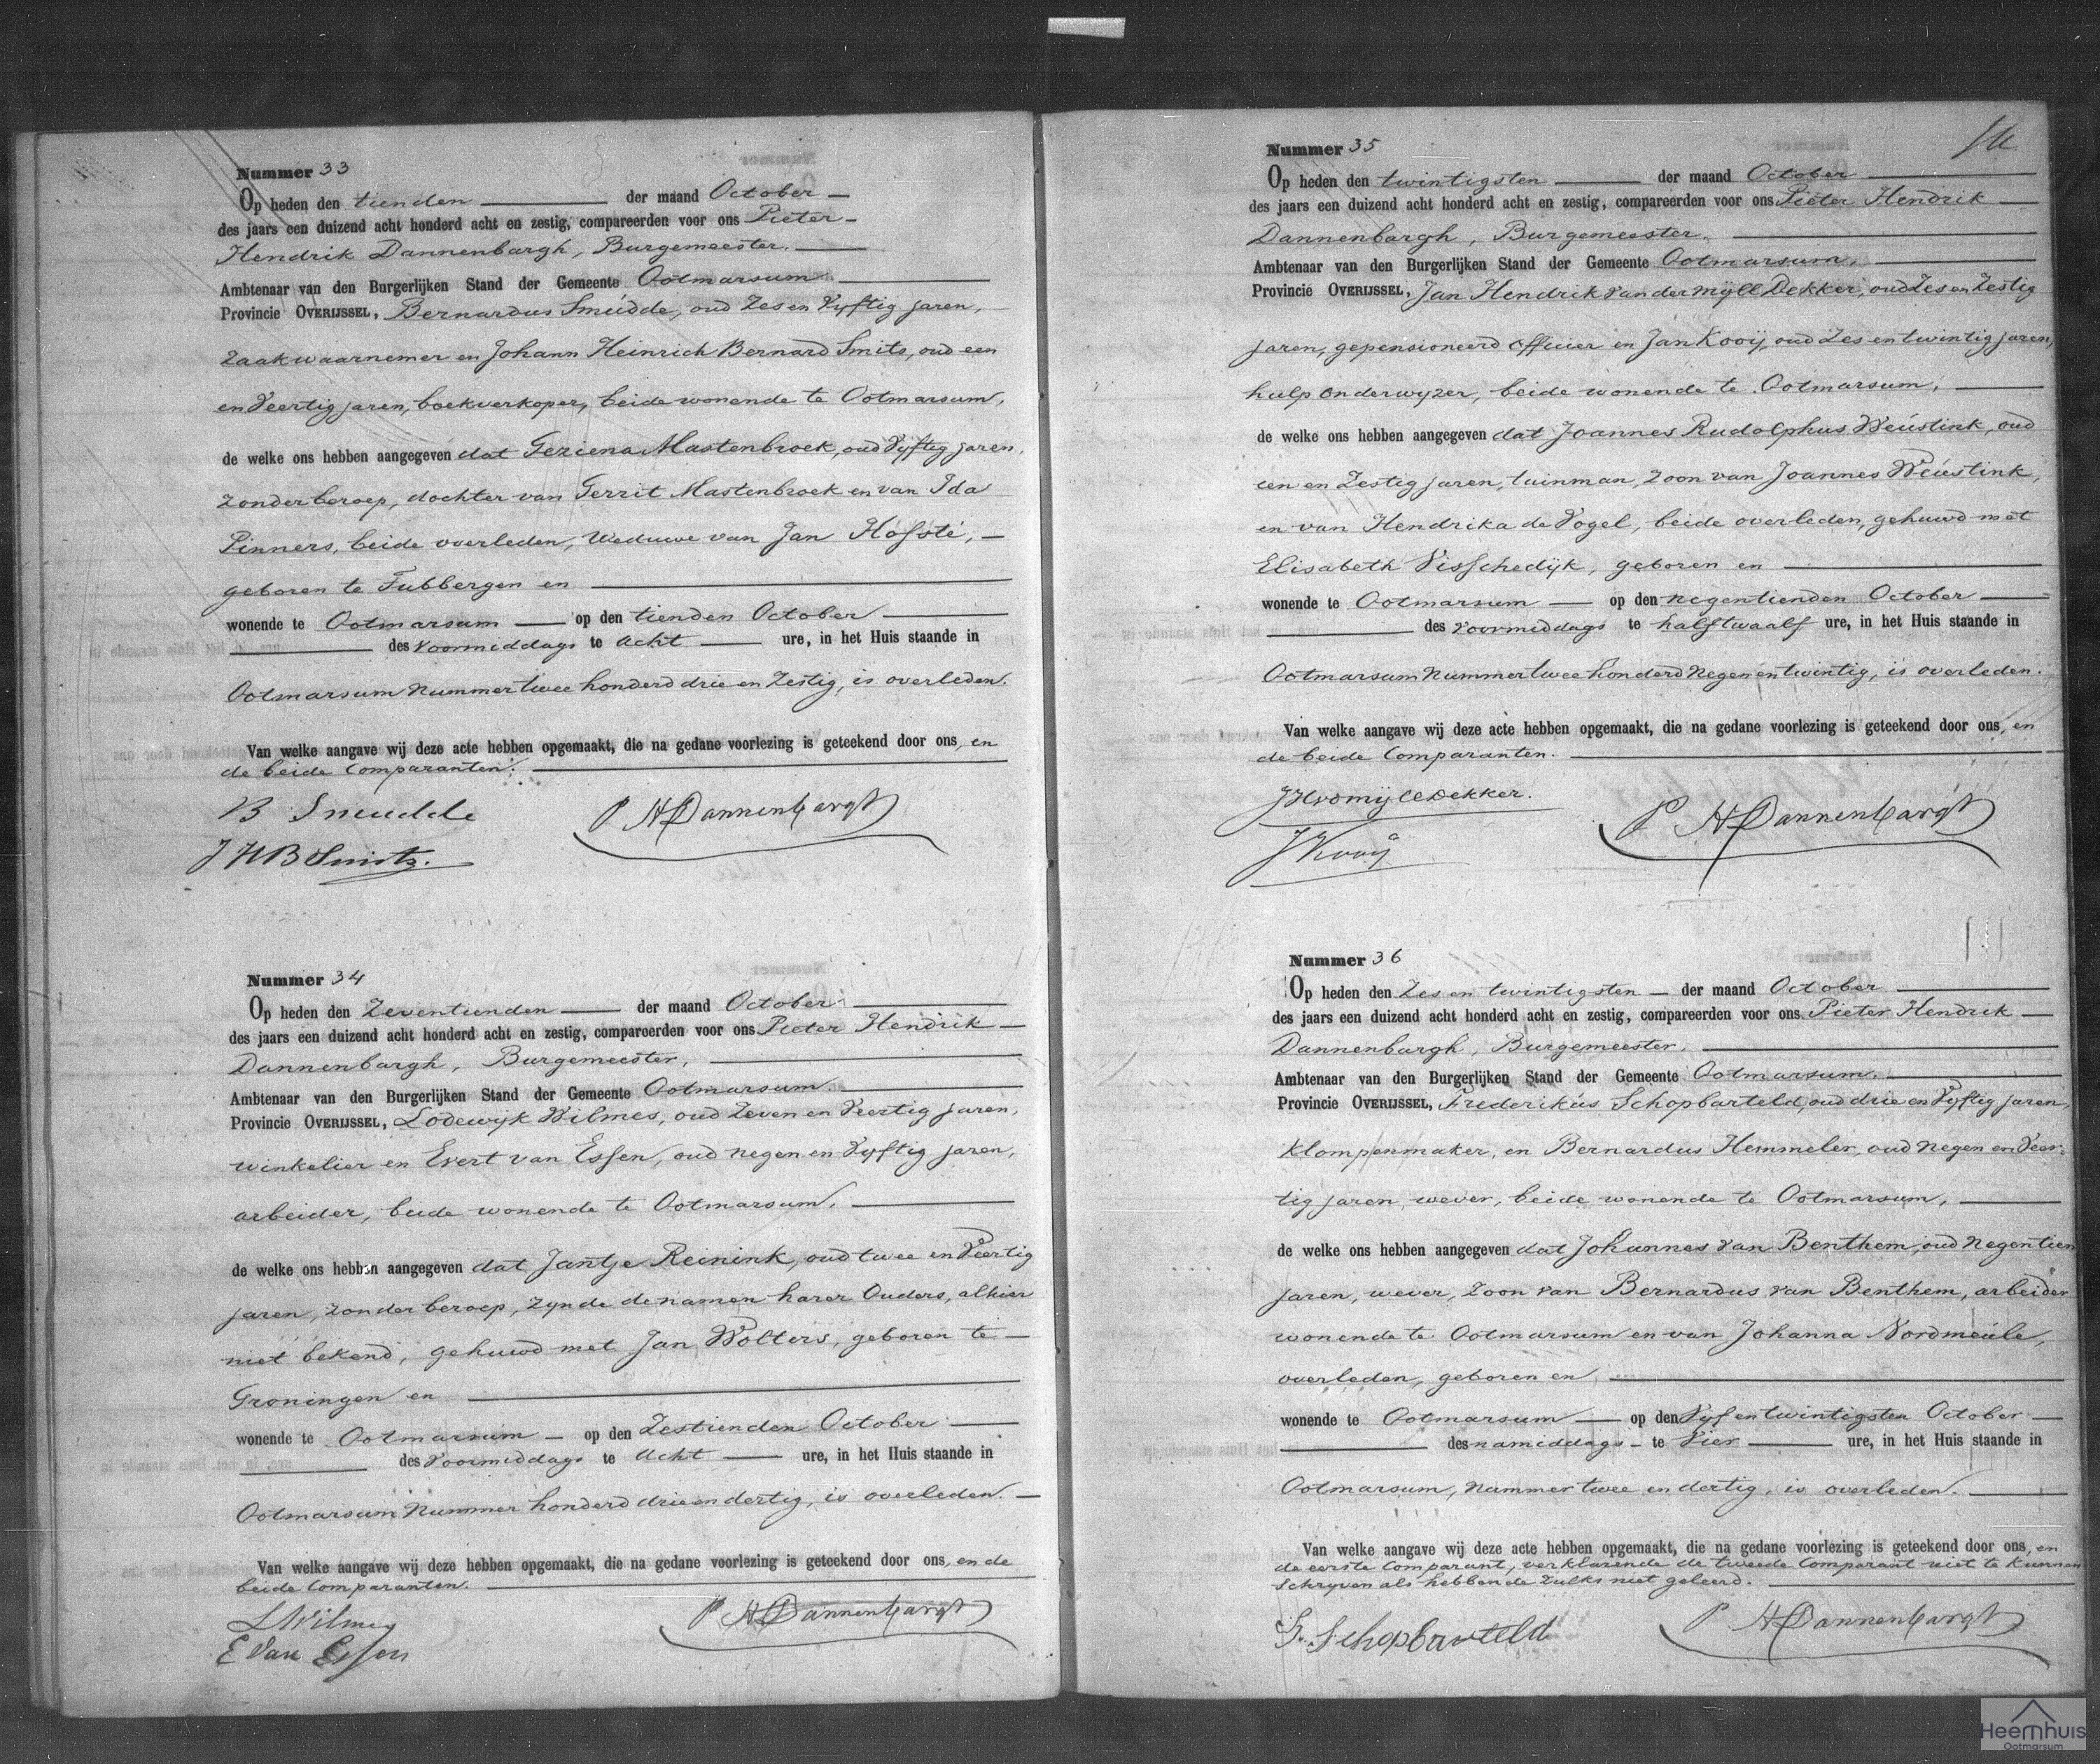 Nummer 33
Op heden den tienden der maand October
des jaars een duizend acht honderd acht en zestig, compareerden voor ons Pieter
Hendrik Dannenbargh, Burgemeester.
Ambtenaar van den Burgerlijken Stand der Gemeente Ootmarsum.
Provincie OVERIJSSEL, Bernardus Smüdde, oud Zes en Vijftig jaren,
Zaakwaarnemer en Johann Heinrich Bernard Smits, oud een
en Veertig jaren, boekverkoper, beide wonende te Ootmarsum,
de welke ons hebben aangegeven dat Geziena Mastenbroek, oud Vijftig jaren,
zonder beroep, dochter van Gerrit Mastenbroek en van Ida
Pinners, beide overleden, Weduwe van Jan Hofsté,
geboren te Tubbergen en
wonende te Ootmarsum op den tienden October
des voormiddags te Acht ure, in het Huis staande in
Ootmarsum Nummer twee honderd drie en Zestig, is overleden.
Van welke aangave wij deze acte hebben opgemaakt, die na gedane voorlezing is geteekend door ons, en
de beide Comparanten.
B Smudde
P H Dannenbargh
J H B Smits.
Nummer 34
Op heden den Zeventienden der maand October
des jaars een duizend acht honderd acht en zestig, compareerden voor ons Pieter Hendrik
Dannenbargh, Burgemeester,
Ambtenaar van den Burgerlijken Stand der Gemeente Ootmarsum.
Provincie OVERIJSSEL, Lodewijk Wilmes, oud Zeven en Veertig jaren,
winkelier en Evert van Essen, oud negen en Vijftig jaren,
arbeider, beide wonende te Ootmarsum,
de welke ons hebben aangegeven dat Jantje Reinink, oud twee en Veertig
jaren, zonder beroep, zynde de namen harer Ouders, alhier
niet bekend, gehuwd met Jan Wolters, geboren te
Groningen en
wonende te Ootmarsum op den Zestienden October
des Voormiddags te Acht ure, in het Huis staande in
Ootmarsum Nummer honderd drie en dertig, is overleden.
Van welke aangave wij deze hebben opgemaakt, die na gedane voorlezing is geteekend door ons, en de
beide Comparanten.
L Wilmes
P H Dannenbargh
E Van Essen
Nummer 35
Op heden den twintigsten der maand October
des jaars een duizend acht honderd acht en zestig, compareerden voor ons Pieter Hendrik
Dannenbargh, Burgemeester,
Ambtenaar van den Burgerlijken Stand der Gemeente Ootmarsum,
Provincie OVERIJSSEL, Jan Hendrik van der Mijll Dekker, oud Zes en Zestig
jaren, gepensioneerd Officier en Jan Kooij, oud Zes en twintig jaren,
hulp Onderwyzer, beide wonende te Ootmarsum,
de welke ons hebben aangegeven dat Joannes Rudolphus Weüstink, oud
een en Zestig jaren, tuinman, Zoon van Joannes Weüstink,
en van Hendrika de Vogel, beide overleden, gehuwd met
Elisabeth Visschedijk, geboren en
wonende te Ootmarsum op den negentienden October
des Voormiddags te halftwaalf ure, in het Huis staande in
Ootmarsum Nummer twee honderd Negen en twintig, is overleden.
Van welke aangave wij deze acte hebben opgemaakt, die na gedane voorlezing is geteekend door ons, en
de beide Comparanten.
JHvdMijllDekker.
P H Dannenbargh
J Kooij
Nummer 36
Op heden den Zes en twintigsten der maand October
des jaars een duizend acht honderd acht en zestig, compareerden voor ons Pieter Hendrik
Dannenbargh, Burgemeester,
Ambtenaar van den Burgerlijken Stand der Gemeente Ootmarsum.
Provincie OVERIJSSEL, Frederikus Schopbarteld, oud drie en Vijftig jaren,
Klompenmaker, en Bernardus Hemmeler, oud negen en Veer-
tig jaren, wever, beide wonende te Ootmarsum,
de welke ons hebben aangegeven dat Johannes van Benthem, oud Negentien
jaren, wever, Zoon van Bernardus van Benthem, arbeider
wonende te Ootmarsum en van Johanna Nordmeüle,
overleden, geboren en
wonende te Ootmarsum op den Vijf en twintigsten October
des namiddags te Vier ure, in het Huis staande in
Ootmarsum, Nummer twee en dertig, is overleden.
Van welke aangave wij deze acte hebben opgemaakt, die na gedane voorlezing is geteekend door ons, en
de eerste Comparant, verklarende de tweede Comparant niet te kunnen
schrijven als hebbende zulks niet geleerd.
P H Dannenbargh
F. Schopbarteld
Heemhuis
Ootmarsum